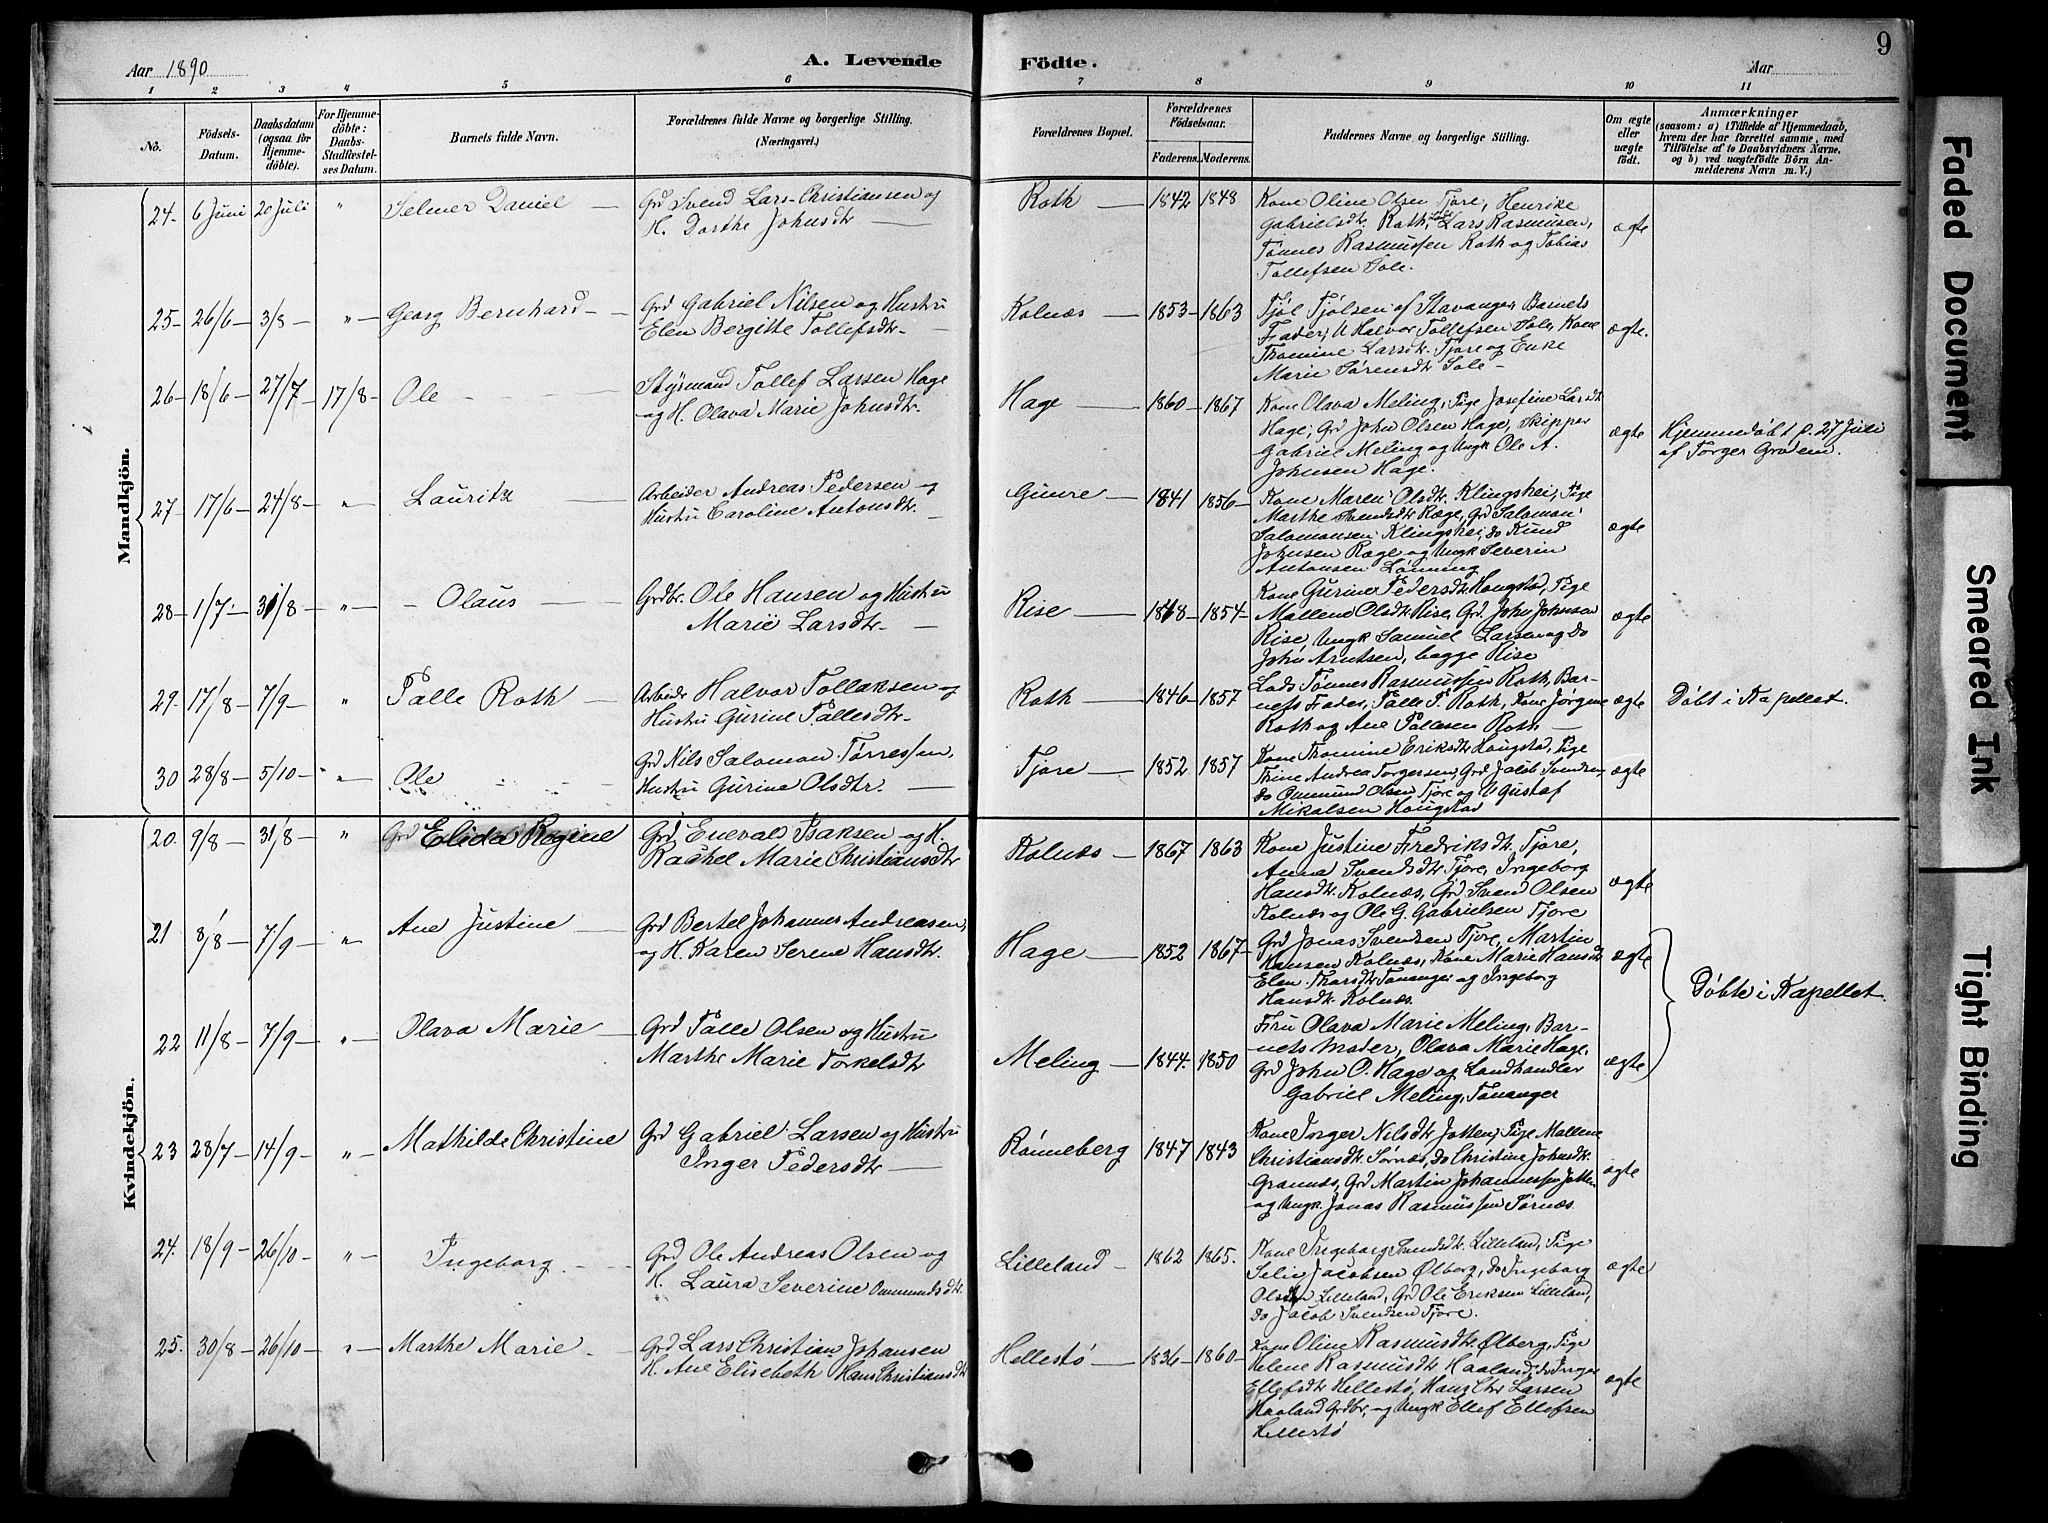 Aar 1890
A. Levende
Födte.
Aar
9
1 2 3 4 5 6 7 8 9 10 11
No.
Födsels-
Datum.
Daabsdatum
(ogsaa for
Hjemme-
döbte).
For Hjemme-
döbte:
Daabs-
Stadfæstel-
ses Datum.
Barnets fulde Navn.
Forældrenes fulde Navne og borgerlige Stilling.
(Næringsvei.)
Forældrenes Bopæl.
Forældrenes
Födselsaar.
Faderens. Moderens.
Faddernes Navne og borgerlige Stilling.
Om ægte
eller
uægte
født.
Anmærkninger
(saasom: a) i Tilfælde af Hjemmedaab,
hvem der har forrettet samme, med
Tilföielse af to Daabsvidners Navne,
og b) ved uægtefödte Börn An-
melderens Navn m. V.)
Mandkjön.
24. 6 Juni 20 Juli " Selmer Daniel
Grd Svend Lars-Christiansen og
H. Dorthe Johnsdtr
Roth 1842 1848
Kone Oline Olsen Tjore, Henrike
Gabrielsdtr. Roth, Lars Rasmusen,
Tønnes Rasmussen Roth og Tobias
Tollefsen Sole.
ægte
25 26/6 3/8 " Georg Bernhard
Grd Gabriel Nilsen og Hustru
Elen Bergitte Tollefsdtr.
Kolnæs 1853 1863
Tjøl Tjølsen af Stavanger, Barnets
Fader, U Halvor Tollefsen Sole, Kone
Tromine Larsdtr. Tjore og Enke
Marie Sørensdtr Sole
ægte.
26 18/6 27/7 17/8 Ole
Styrmand Tollef Larsen Hage
og H. Olava Marie Johnsdtr.
Hage 1860 1867
Kone Olava Meling, Pige Josefine Larsdtr
Hage, Grd John Olsen Hage, Skipper
Gabriel Meling og Ungk Ole A.
Johnsen Hage.
ægte
Hjemmedøbt p. 27 Juli
af Torger Grødem.
27 17/6 24/8 " Lauritz
Arbeider Andreas Pedersen og
Hustru Caroline Antonsdtr.
Gimre 1841 1856
Kone Maren Olsdtr. Klingshei, Pige
Marthe Svendsdtr Ræge, Grd Salomon
Salomonsen Klingshei, do Knud
Johnsen Ræge og Ungk Severin
Antonsen Lønning
ægte
28 1/7 31/8 " Olaus
Grdbr. Ole Hansen og Hustru
Marie Larsdtr.
Rise 1848 1854
Kone Gurine Pedersdtr Hougstad, Pige
Mallene Olsdtr Rise, Grd John Johnsen
Rise, Ungk Samuel Larsen og do
John Arntsen, begge Rise
ægte
29. 17/8 7/9 " Palle Roth
Arbeider Halvor Tollaksen og
Hustru Gurine Pallesdtr.
Roth 1846 1857
Lods Tønnes Rasmussen Roth, Bar-
nets Fader, Palle T. Roth, Kone Jørgine
Roth og Ane Pallesen Roth
ægte
Døbt i Kapellet.
30 28/8 5/10 " Ole
Grd Nils Salomon Tørressen,
Hustru Gurine Olsdtr.
Tjore 1852 1857
Kone Tromine Eriksdtr Hougstad, Pige
Thine Andrea Torgersen, Grd Jacob Svendsen,
do Ommund Olsen Tjore og U Gustaf
Mikalsen Hougstad
ægte
Kvindekjön.
20. 9/8 31/8 " Elida Regine
Grd Enevald Isaksen og H.
Rachel Marie Christiansdtr
Kolnæs 1867 1863
Kone Justine Fredriksdtr. Tjore,
Anna Svendsdtr Tjore, Ingeborg
Hansdtr. Kolnæs, Grd Svend Olsen
Kolnæs og Ole G. Gabrielsen Tjore
ægte
21 8/8 7/9 " Ane Justine
Grd Bertel Johannes Andreasen,
og H. Karen Serene Hansdtr.
Hage 1852 1867
Grd Jonas Svendsen Tjore, Martin
Hansen Kolnæs, Kone Marie Hansdtr
Elen Thorsdtr Tananger og Ingeborg
Hansdtr. Kolnæs.
ægte
Døbte i Kapellet.
22 11/8 7/9 " Olava Marie
Grd Palle Olsen og Hustru
Marthe Marie Torkelsdtr
Meling 1844 1850
Fru Olava Marie Meling, Bar-
nets Moder, Olava Marie Hage,
Grd John O. Hage og Landhandler
Gabriel Meling, Tananger
ægte
23 28/7 14/9 " Mathilde Christine
Grd Gabriel Larsen og Hustru
Inger Pedersdtr
Rønneberg 1847 1843
Kone Inger Nilsdtr Jotten, Pige Mallene
Christiansdtr. Sørnæs, do Christine Johnsdtr.
Grannæs, Grd Martin Johannessen Jotten
og Ungk. Jonas Rasmussen Sørnæs.
ægte
24. 18/9 26/10 " Ingeborg
Grd Ole Andreas Olsen og
H. Laura Severine Ommundsdtr.
Lilleland 1862 1865.
Kone Ingeborg Svendsdtr. Lilleland, Pige
Selie Jacobsen Ølberg, do Ingeborg
Olsdtr Lilleland, Grd Ole Eriksen Lilleland,
do Jacob Svendsen Tjore.
ægte
25. 30/8 26/10 " Marthe Marie
Grd Lars Christian Johansen
H. Ane Elisebeth Hans Christiansdtr
Hellestø 1836 1860
Kone Oline Rasmusdtr. Ølberg, Pige
Helene Rasmusdtr Haaland, do Inger
Ellefsdtr Hellestø, Hans Chr Larsen
Haaland Grdbr, og Ungk Ellef Ellefsen
Hellestø
ægte
Faded Document
Smeared Ink
Tight Binding